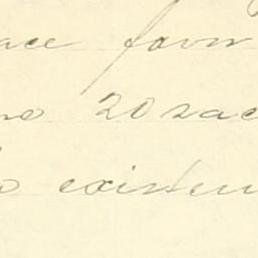 ace favor
20 sac
existen